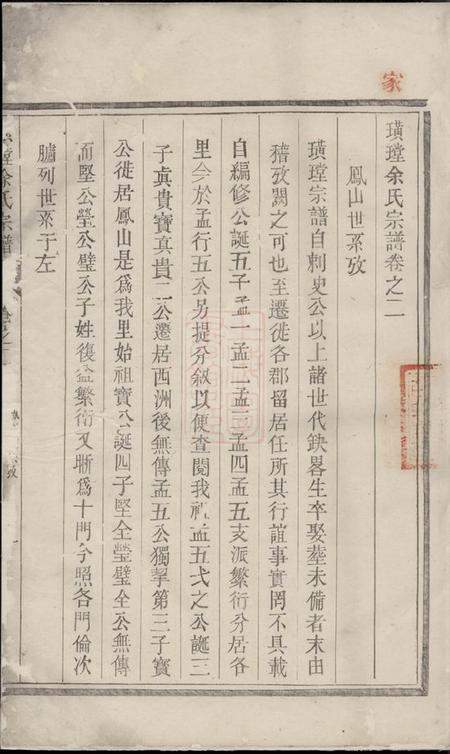 家
璜瑝余氏宗譜卷之二
鳳山世系攷
璜瑝宗譜自刺史公以上諸世代鈌畧生卒娶塟未備者末由
稽攷闕之可也至遷徙各郡留居任所其行誼事實罔不具載
自編修公誕五子孟一孟二孟三孟四孟五支派繁衍分居各
里今於孟行五公另提分敘以便查閱我祖孟五弍之公誕三
子真貴寶真貴二公遷居西洲後無傳孟五公獨挈第三子寶
公徙居鳳山是爲我里始祖寶公誕四子堅全瑩璧全公無傳
而堅公瑩公璧公子姓復益繁衍又晰爲十門今照各門倫次
臚列世系于左
余氏宗譜